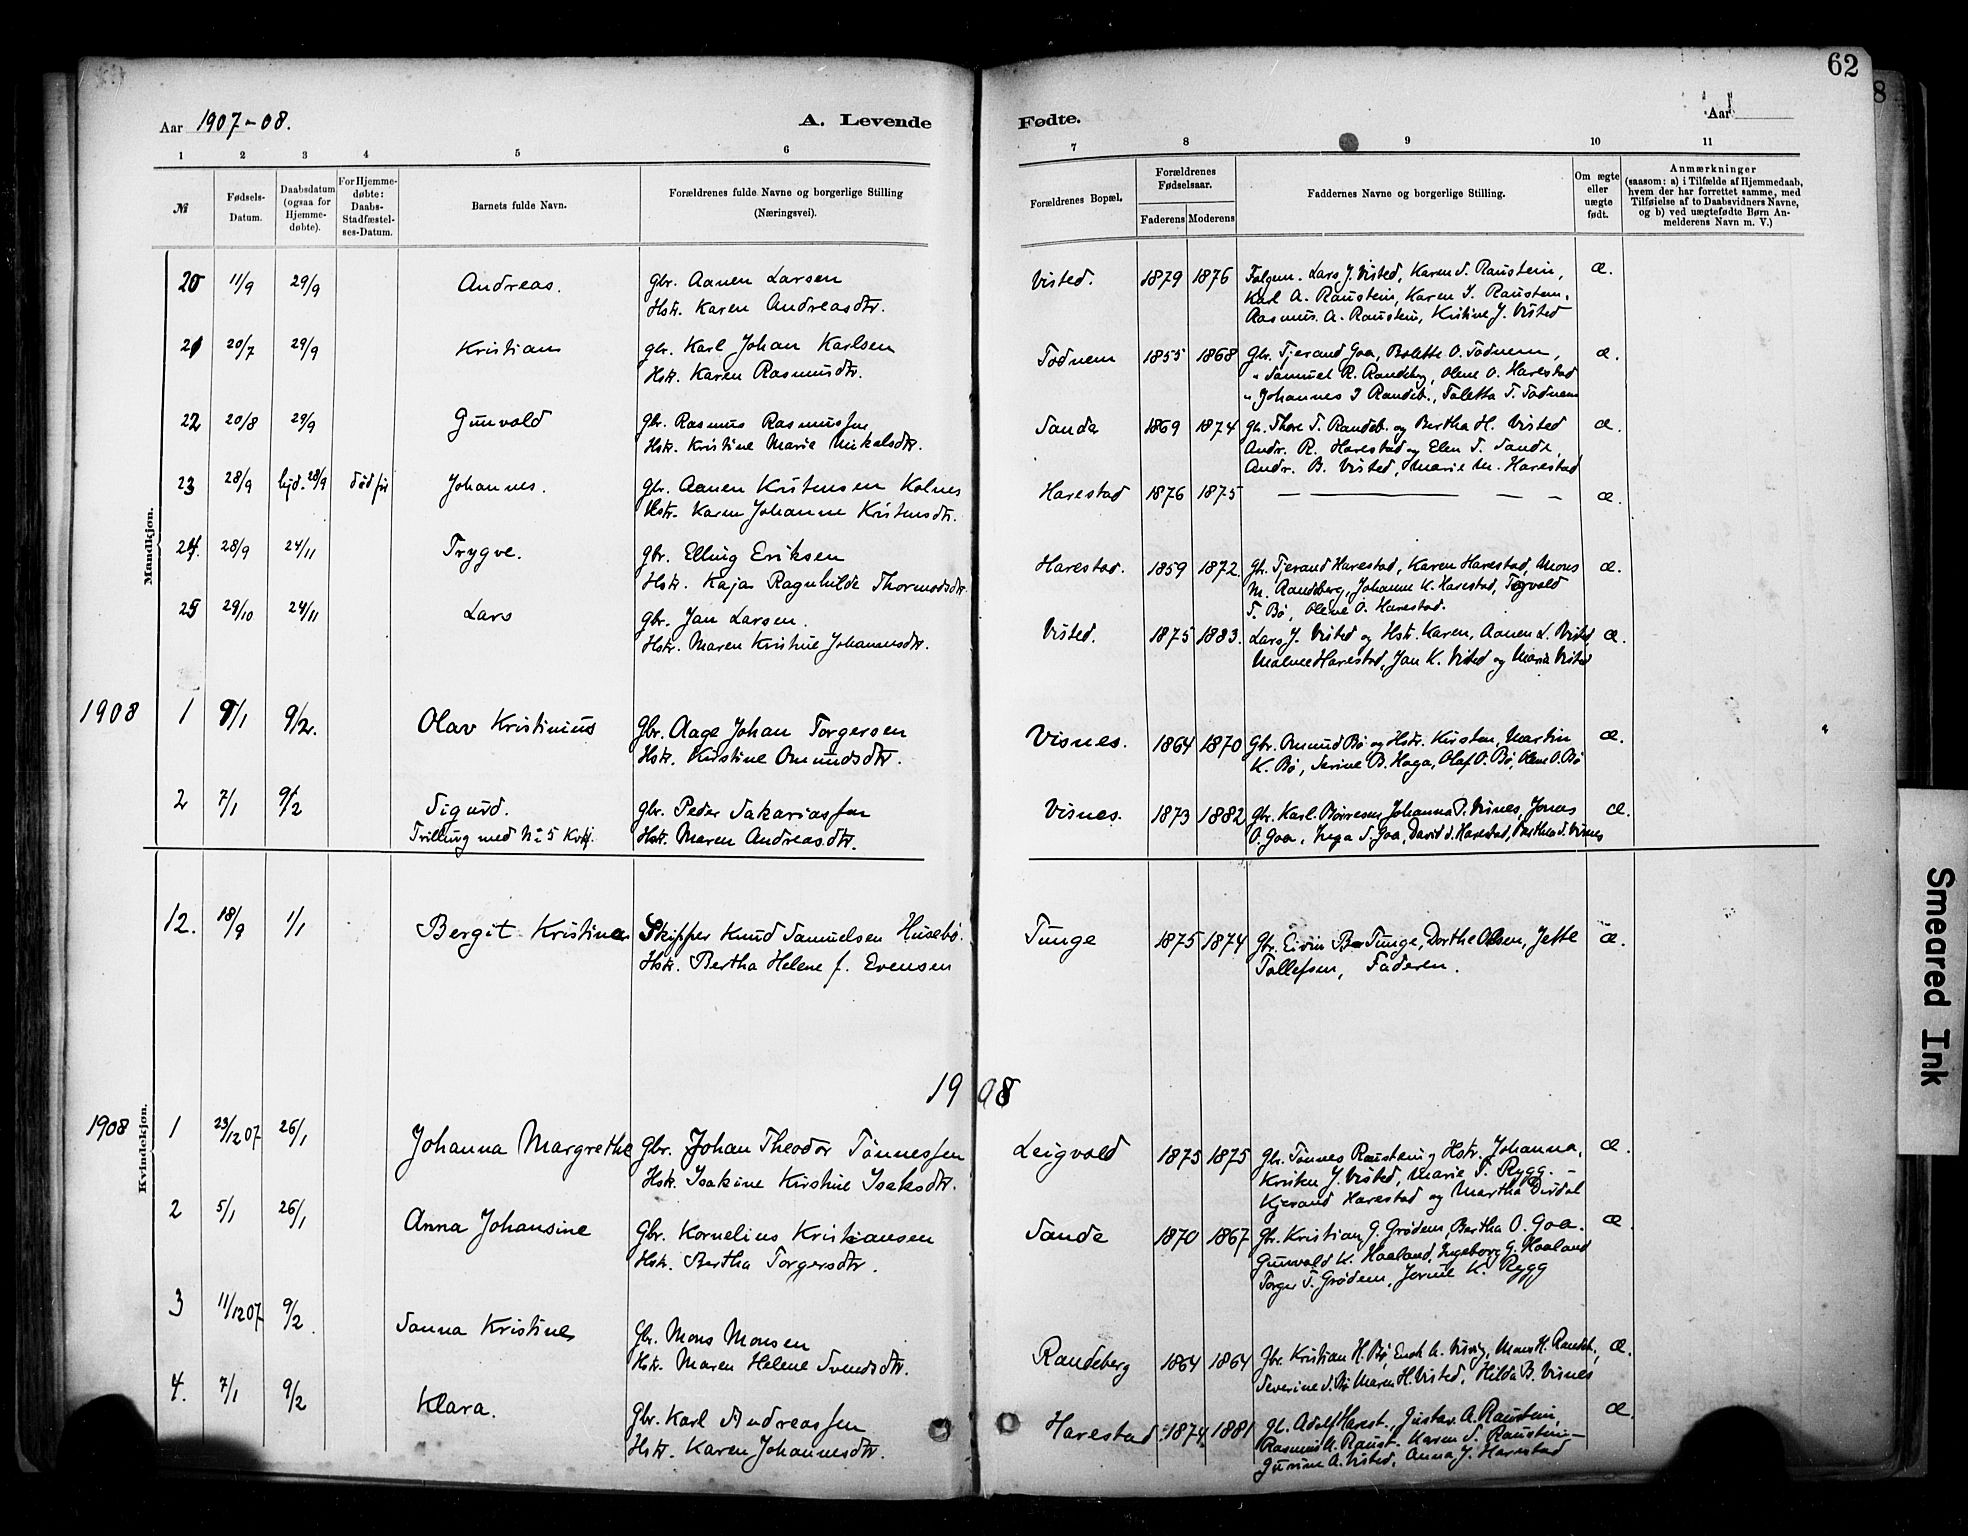 62
8
Aar 1907-08.
A. Levende
Fødte.
Aar
1 2 3 4 5 6
7 8 9 10 11
№
Fødsels-
Datum.
Daabsdatum
(ogsaa for
Hjemme-
døbte).
For Hjemme-
døbte:
Daabs-
Stadfæstel-
ses-Datum.
Barnets fulde Navn.
Forældrenes fulde Navne og borgerlige Stilling
(Næringsvei).
Forældrenes Bopæl.
Forældrenes
Fødselsaar.
Faderens Moderens
Faddernes Navne og borgerlige Stilling.
Om ægte
eller
uægte
født.
Anmærkninger
(saasom: a) i Tilfælde af Hjemmedaab,
hvem der har forrettet samme, med
Tilføielse af to Daabsvidners Navne,
og b) ved uægtefødte Børn An-
melderens Navn m. V.)
Mandkjøn.
20 11/9 29/9 Andreas. Gbr. Aanen Larsen
Hstr. Karen Andreasdtr.
Visted. 1879 1876 Lars J. Visted, Karen S. Raustein, æ.
Karl A. Raustein, Karen I. Raustein,
Rasmus A. Raustein, Kristine J. Visted
21 20/7 29/9 Kristian Gbr. Karl Johan Karlsen
Hstr. Karen Rasmusdtr.
Todnem 1855 1868 Gbr. Tjerand Goa, Bolette O. Todnem, æ.
" Samuel R. Randeberg, Olene O. Harestad
" Johannes I Randeb., Taletta T. Todnem
22 20/8 29/9 Gunvald Gbr. Rasmus Rasmussen
Hstr. Kristine Marie Mikalsdtr.
Sande 1869 1874 Gbr. Thore T. Randeb. og Bertha H. Visted æ.
Andr. R. Harestad og Elen T. Sande,
Andr. B. Visted, Marie M. Harestad
23 28/9 hjd. 28/9 død før Johannes. Gbr. Aanen Kristensen Kolnes
Hstr. Karen Johanne Kristensdtr.
Harestad 1876 1875 — — — æ.
24. 28/9 24/11 Trygve. Gbr. Elling Eriksen
Hstr. Kaja Ragnhilde Thormodsdtr.
Harestad. 1859 1872 Gbr. Tjerand Harestad, Karen Harestad, Mons æ.
M. Randeberg, Johanne K. Harestad, Torvald
T. Bø, Olene O. Harestad.
25 29/10 24/11 Lars Gbr. Jan Larsen.
Hstr. Maren Kristine Johannesdtr.
Visted. 1875 1883. Lars J. Visted og Hstr. Karen, Aanen L. Visted æ.
Malene Harestad, Jan K. Visted og Maria Visted
1908 1 9/1 9/2. Olav Kristinius Gbr. Aage Johan Torgersen
Hstr. Kirstine Omundsdtr.
Visnes. 1864 1870 Gbr. Omund Bø og Hstr. Kirsten, Martin æ.
K. Bø, Serine B. Haga, Olaf O. Bø, Olene O. Bø
2 7/1 9/2 Sigurd. Gbr. Peder Sakariassen
Tvilling med № 5 Kvkj. Hstr. Maren Andreasdtr.
Visnes. 1873 1882 Gbr. Karl Børresen, Johanna P. Visnes, Jonas æ.
O. Goa, Inga S. Goa, David d. Harestad, Berthea S. Visnes
12. 18/9 1/1 Bergit Kristine Skipper Knud Samuelsen Husebø.
Hstr. Bertha Helene f. Evensen
Tunge 1875 1874 Gbr. Eivin B Tunge, Dorthe Olsen, Jette æ.
Tollefsen, Faderen.
1908
Kvindekjøn.
1908 1 23/12 07 26/1 Johanna Margrethe Gbr. Johan Theodor Tønnessen
Hstr. Isakine Kirstine Isaksdtr.
Leigvold 1875 1875 Gbr. Tønnes Raustein og Hstr. Johanna, æ.
Kristen J. Visted, Marie T. Rygg. -
Kjerand Harestad og Martha Dirdal
2 5/1 26/1 Anna Johansine Gbr. Kornelius Kristiansen
Hstr. Bertha Torgersdtr.
Sande 1870 1867 Gbr. Kristian G. Grødem, Bertha O. Goa. æ.
Gunvald K. Haaland, Ingeborg G. Haaland
Torger T. Grødem, Jorine K. Rygg
3 11/12 07 9/2 Sanna Kristine Gbr. Mons Monsen
Hstr. Maren Helene Svendsdtr.
Randeberg 1864 1864 Gbr. Kristian H. Bø, Mons H. Randeb., æ.
Severine S. Bø Maren H. Visted, Hilda B. Visnes
4. 7/1 9/2 Klara. Gbr. Karl Andreassen
Hstr. Karen Johannesdtr.
Harestad. 1874 1881 Gbr. Adolf Harest., Gustav A. Raustein, æ.
Rasmus A. Raust. Karen S. Raustein -
Gurine A. Visted, Anna J. Harestad
Smeared Ink